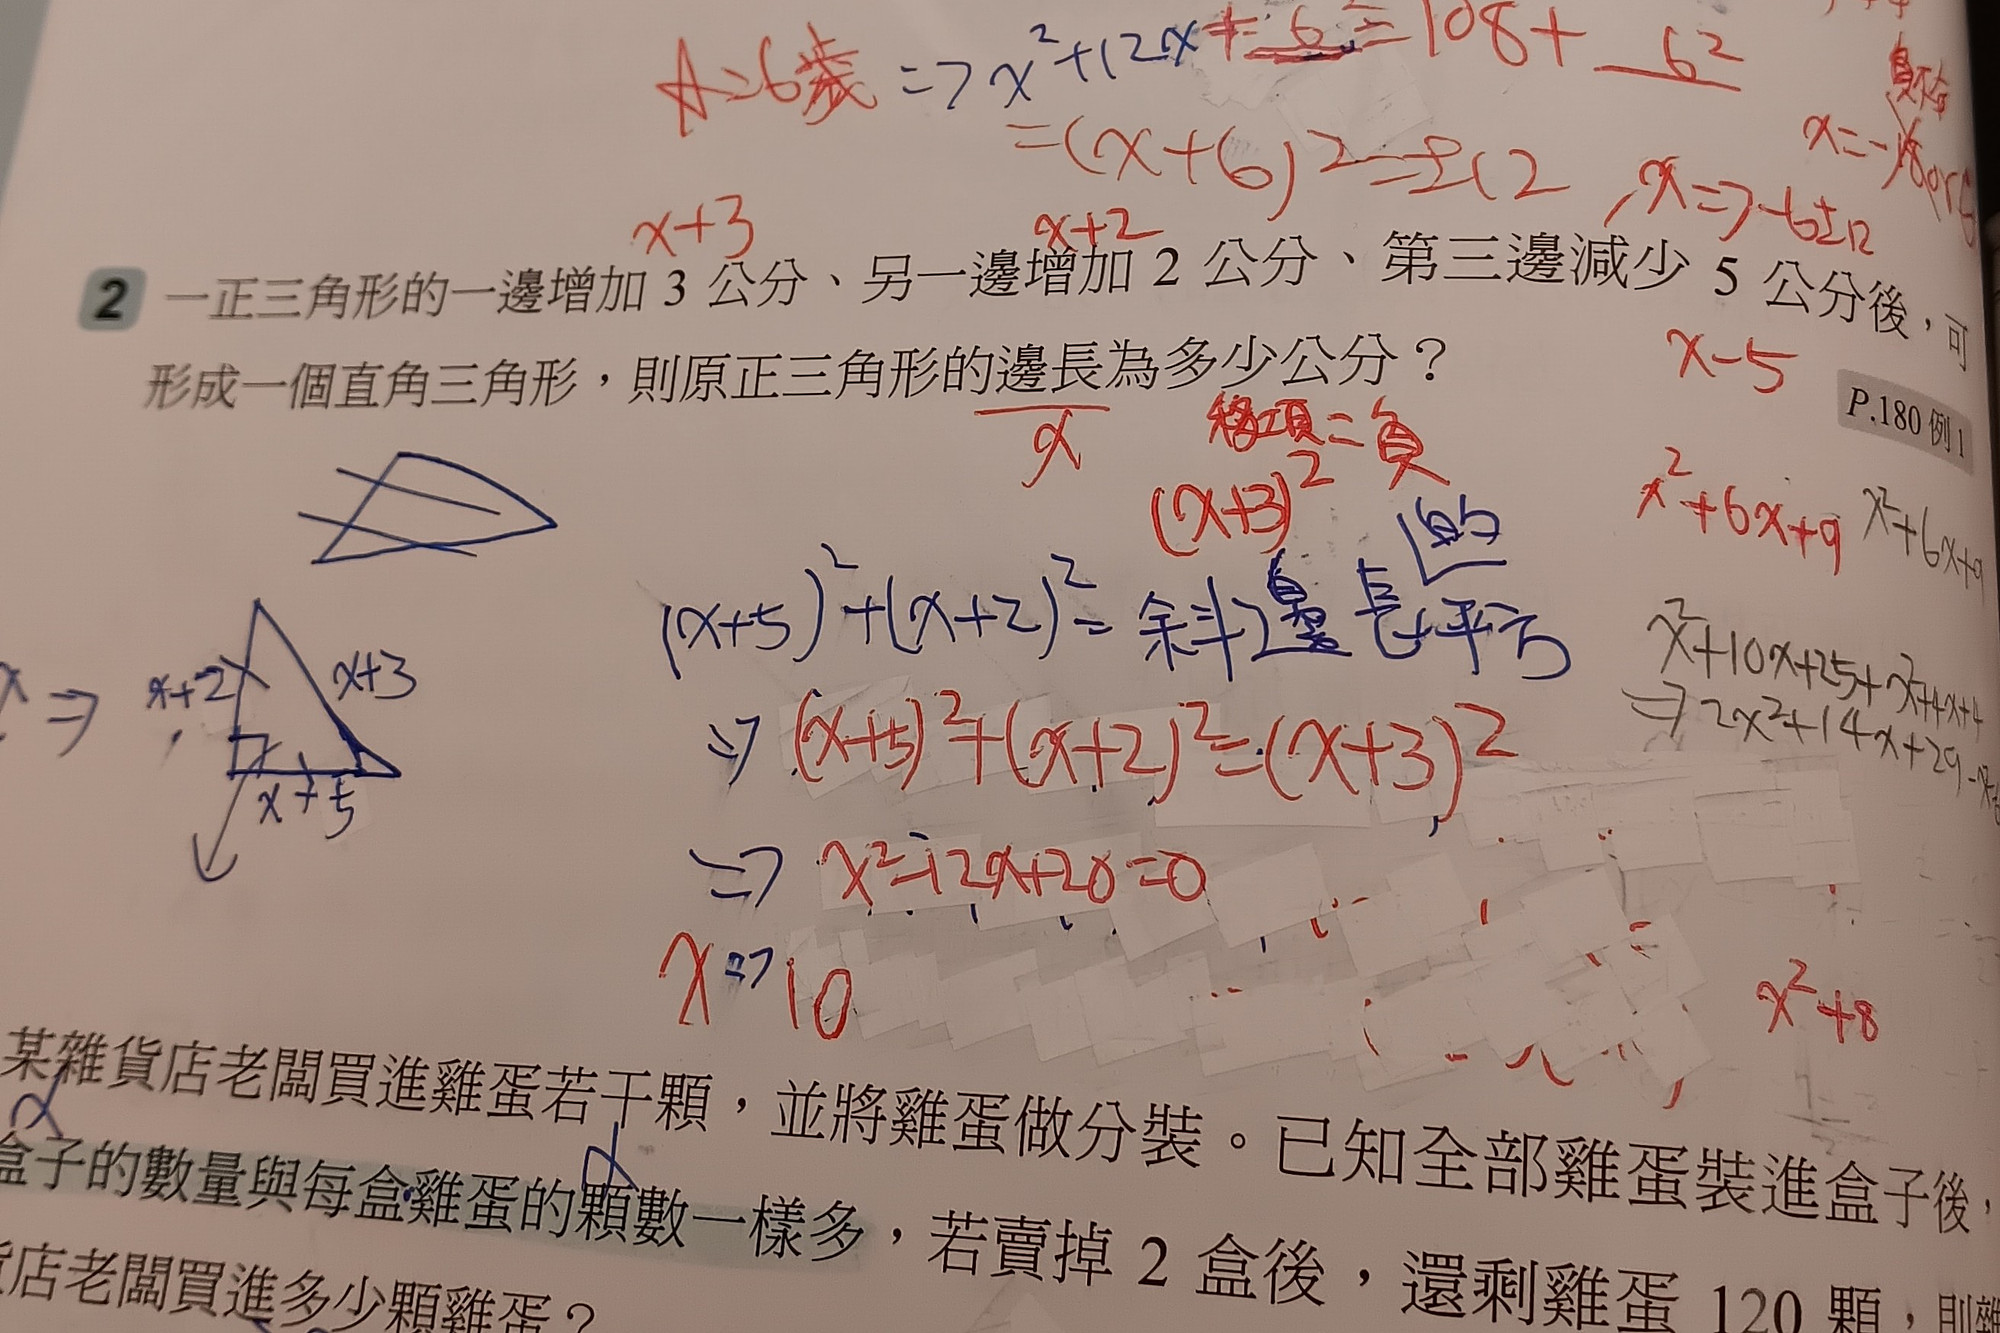 A=6歲 => x²+12x+6²=108+6²
=(x+6)²=±12 , x=>-6±12
x=-18or6
x+3 x+2
2 一正三角形的一邊增加 3 公分、另一邊增加 2 公分、第三邊減少 5 公分後,可
形成一個直角三角形,則原正三角形的邊長為多少公分?
x-5
P.180 例1
x
移項=負
(x+3)²
x²+6x+9 x²+6x+9
的
(x+5)²+(x+2)²=斜邊長平方
x²+10x+25+x²+4x+4
=>2x²+14x+29
x+2 x+3
x+5
=> (x+5)²+(x+2)²=(x+3)²
=> x²-12x+20=0
x => 10
x²+8
某雜貨店老闆買進雞蛋若干顆,並將雞蛋做分裝。已知全部雞蛋裝進盒子後,
x x
盒子的數量與每盒雞蛋的顆數一樣多,若賣掉 2 盒後,還剩雞蛋 120 顆,則雜
貨店老闆買進多少顆雞蛋?